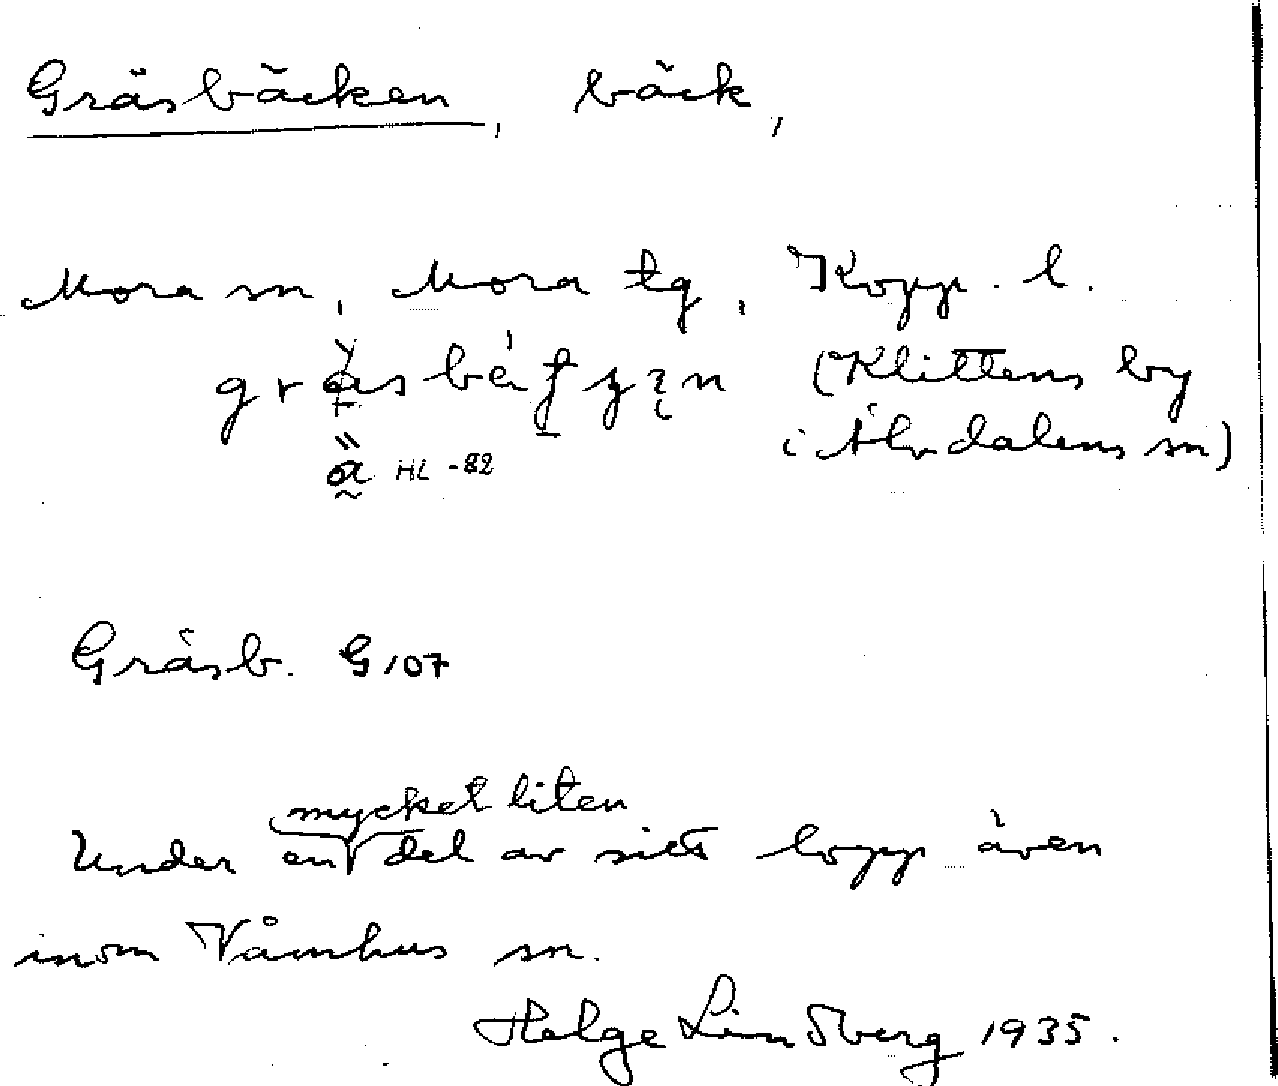 Gräsbäcken, bäck,
Mora sn, Mora tg, Kopp. l.
(Klittens by
i Älvdalens sn)
HL -82
Gräsb. G107
mycket liten
Under en del av sitt lopp även
inom Våmhus sn.
Helge Lindberg 1935.